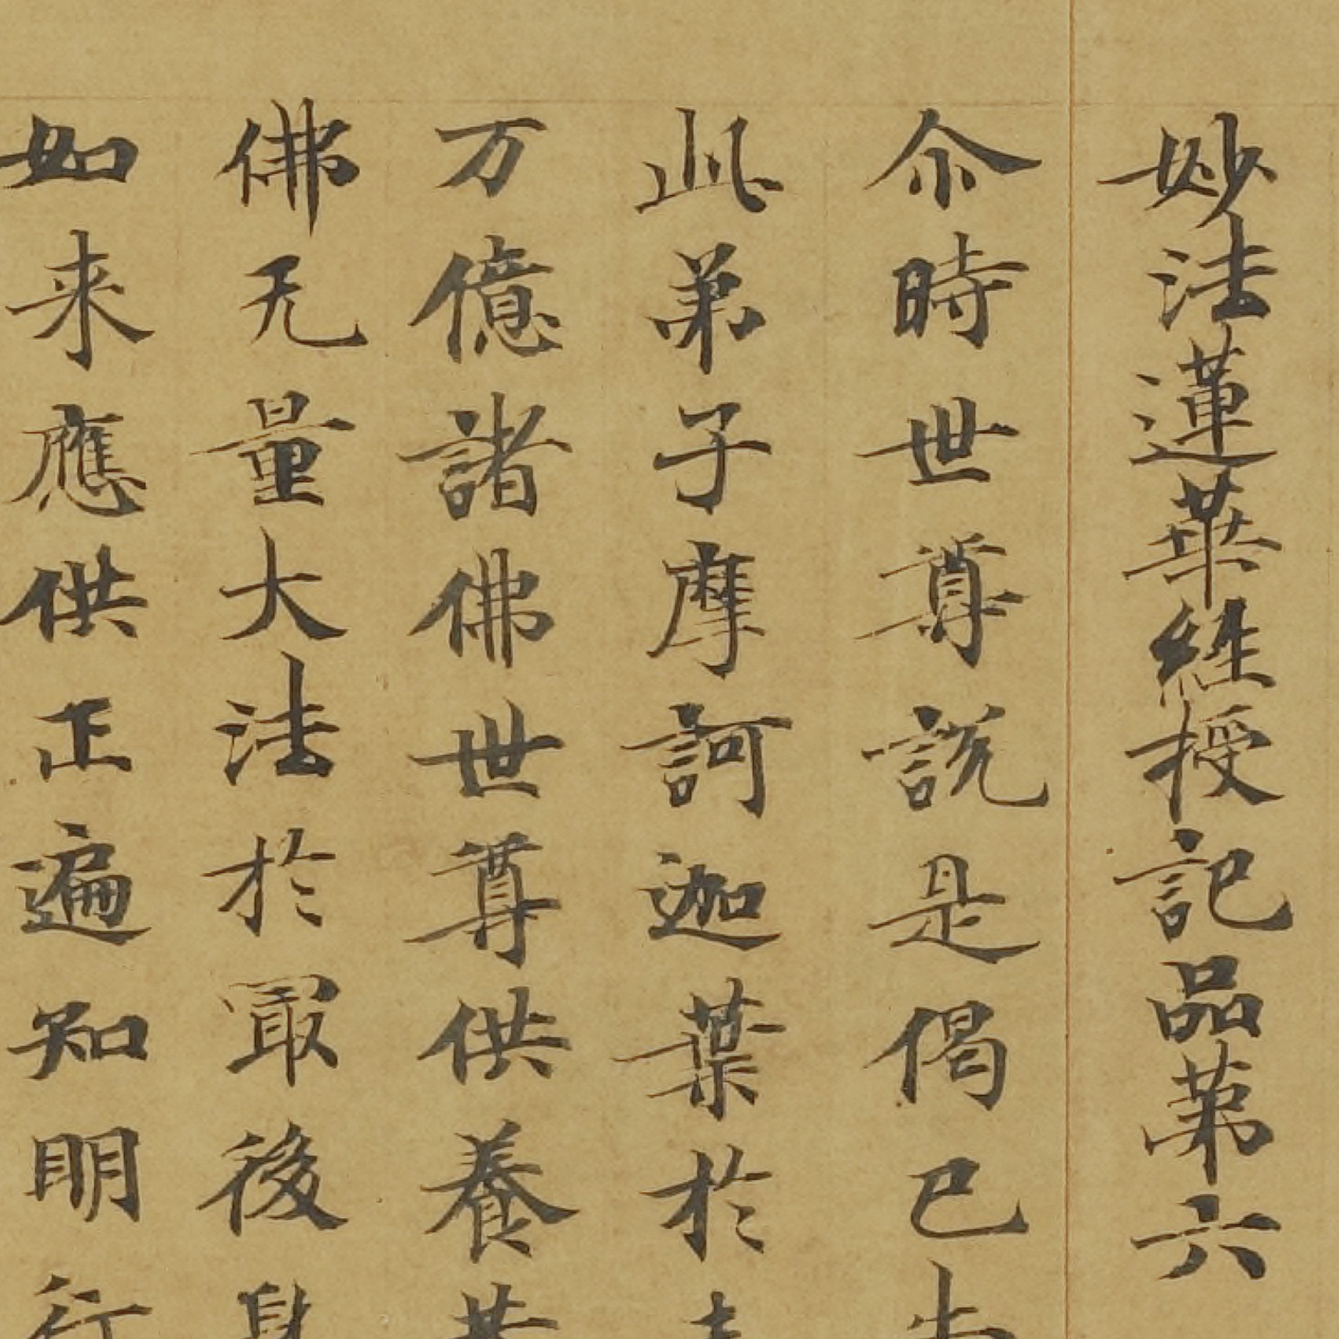 妙法蓮華經授記品第六
尒時世尊說是偈已
此弟子摩訶迦葉於
万億諸佛世尊供養
佛无量大法於冣後身
如来應供正遍知明行